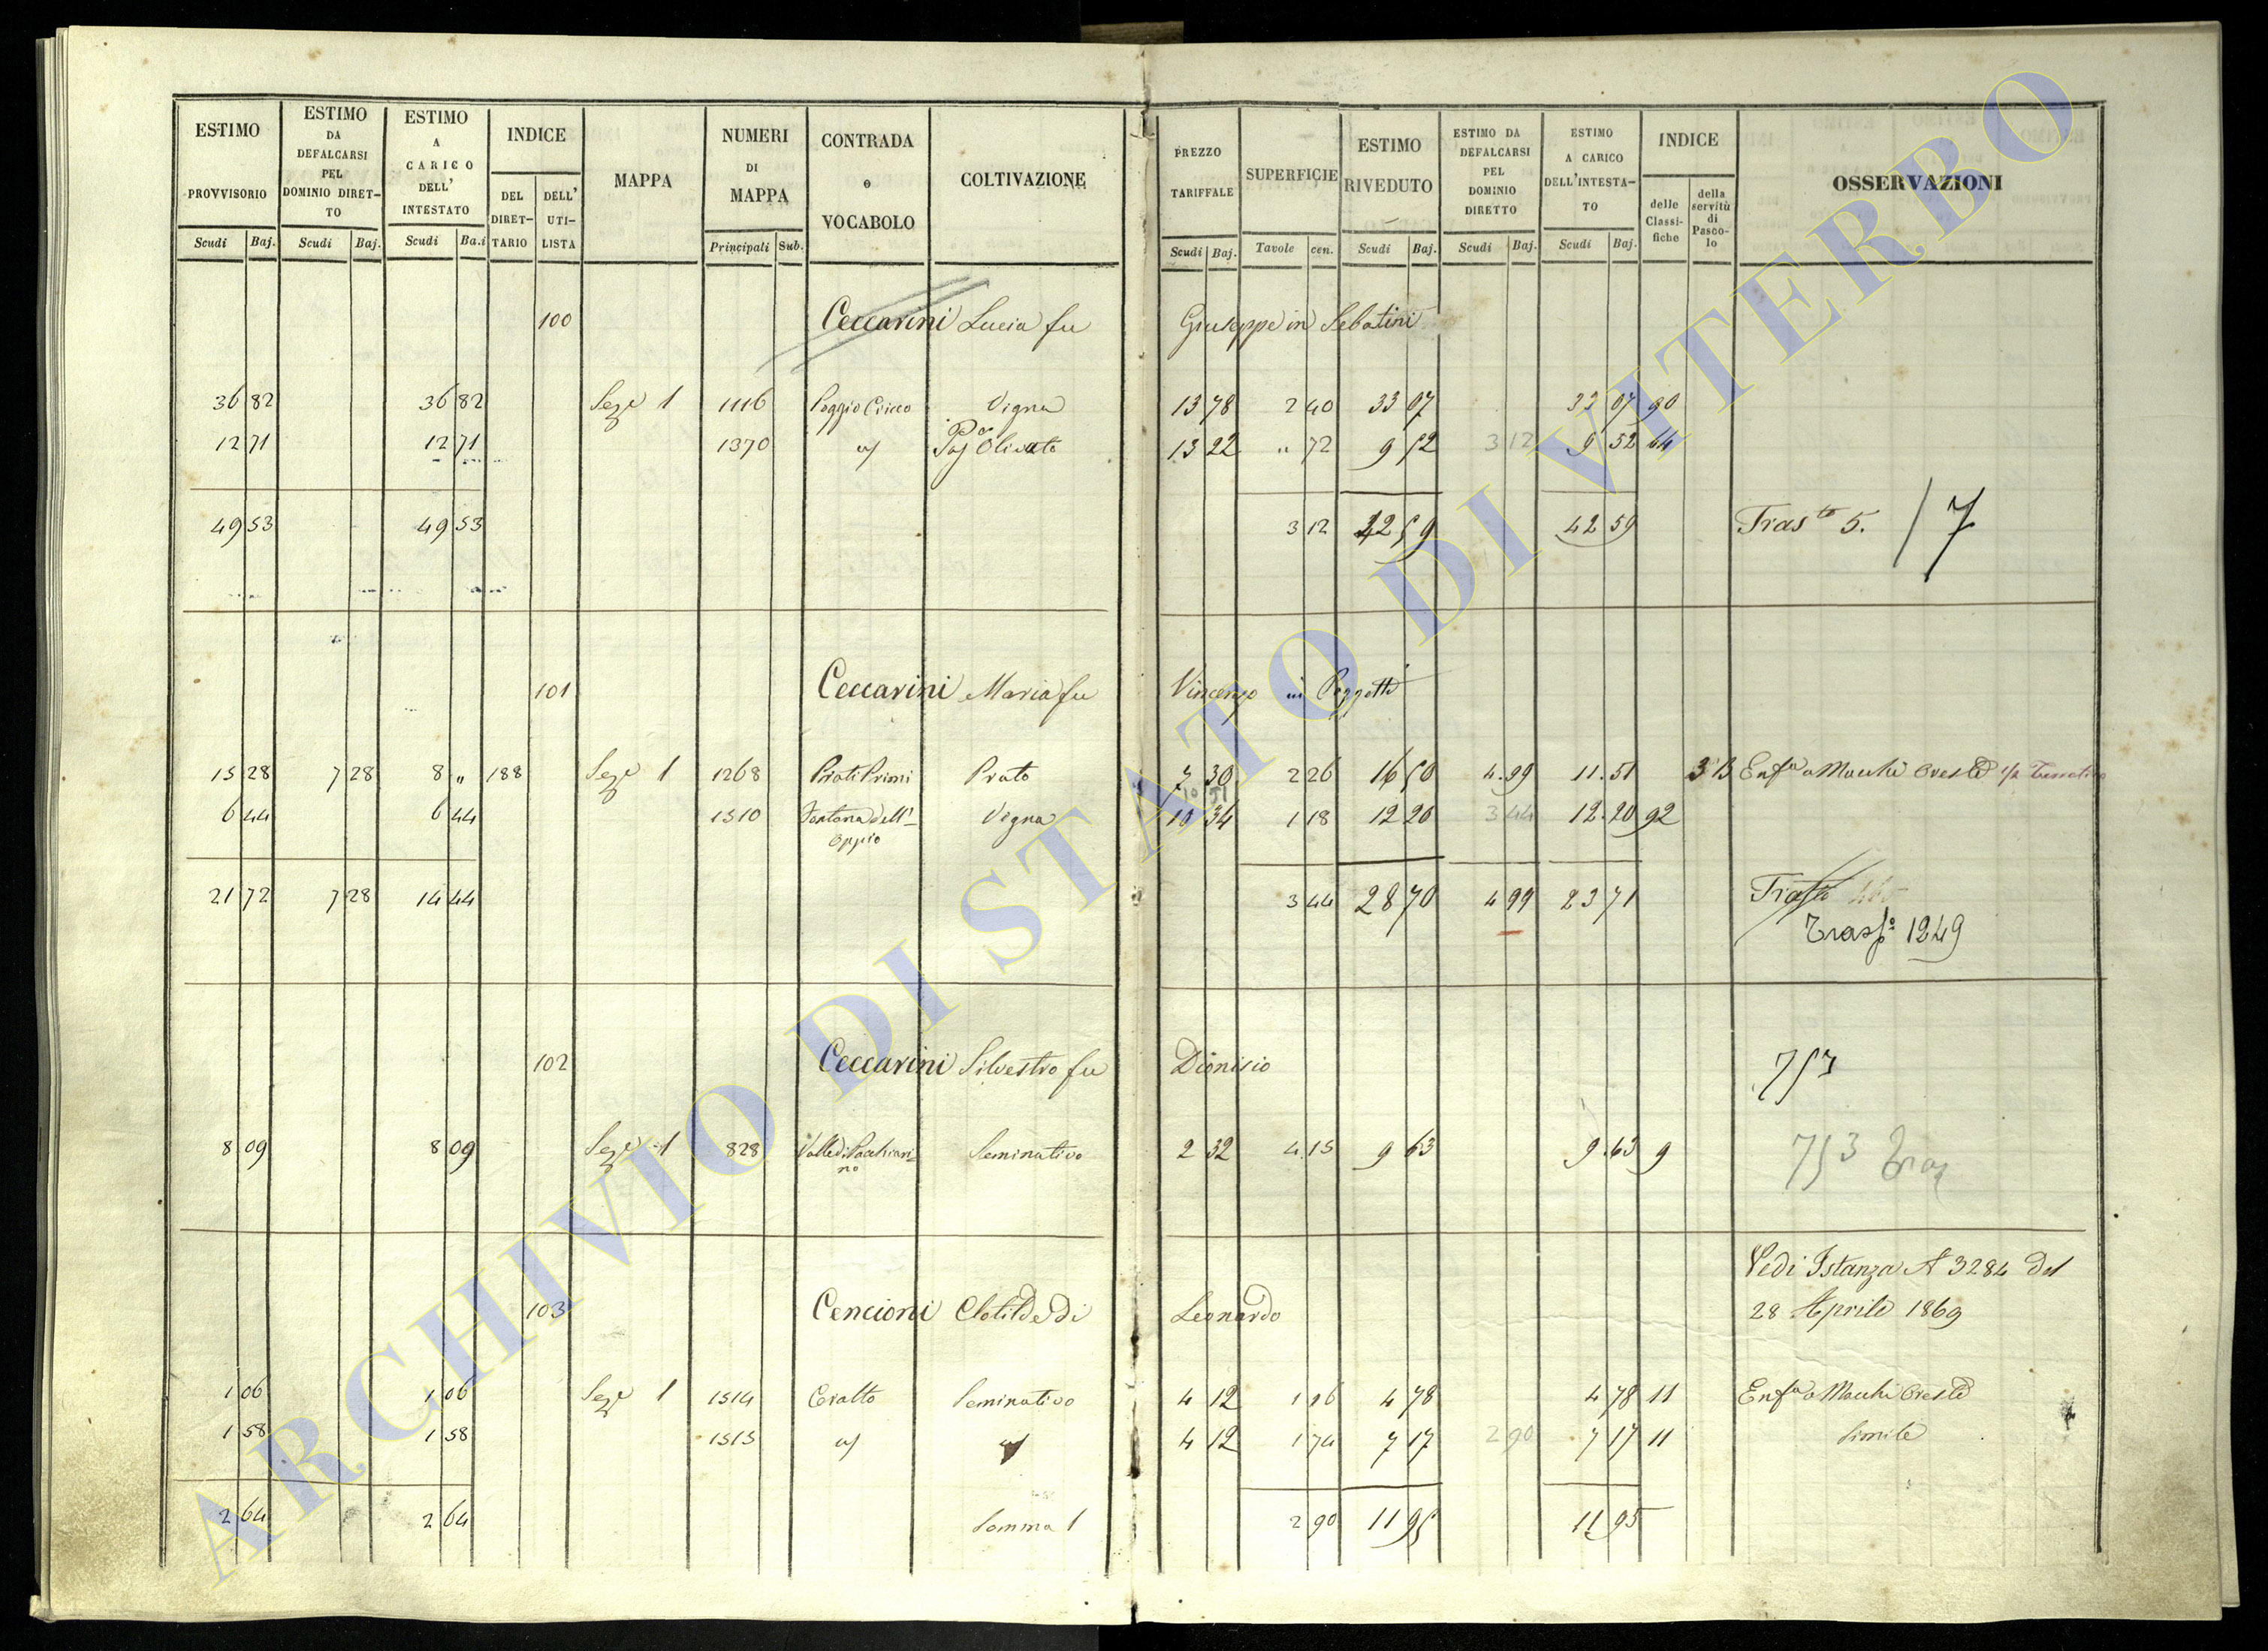 ESTIMO PROVVISORIO Scudi Baj.
ESTIMO DA DEFALCARSI PEL DOMINIO DIRET-TO Scudi Baj.
ESTIMO A CARICO DELL' INTESTATO Scudi Ba.i
INDICE DEL DIRET-TARIO DELL' UTI-LISTA
MAPPA
NUMERI DI MAPPA Principali Sub.
CONTRADA o VOCABOLO
COLTIVAZIONE
PREZZO TARIFFALE Scudi Baj.
SUPERFICIE Tavole cen.
ESTIMO RIVEDUTO Scudi Baj.
ESTIMO DA DEFALCARSI PEL DOMINIO DIRETTO Scudi Baj.
ESTIMO A CARICO DELL'INTESTA-TO Scudi Baj.
INDICE delle Classi-fiche della servitù di Pasco-lo
OSSERVAZIONI
100 Ceccarini Lucia fu Giuseppe in Sebatini
36 82 36 82 Sezе 1 1116 Poggio Cricco Vigna 13 78 2 40 33 07 33 07 90
12 71 12 71 1370 Olivato 13 22 " 72 9 52 3 12 9 52 64
49 53 49 53 3 12 42 59 42 59 Trasto 5. 17
101 Ceccarini Maria fu Vincenzo in Pozzetti
15 28 7 28 8 " 188 Sezе 1 1268 Prati Primi Prato 7 30 2 26 16 50 4.99 11.51 3 B Enfa a Macchi Oreste
10 51
6 44 6 44 1310 Fontana dell'Oppio Vigna 10 34 1 18 12 20 3 44 12.20 92
21 72 7 28 14 44 3 44 28 70 4 99 23 71
Trasfo 1249
102 Ceccarini Silvestro fu Dionisio 753
8 09 8 09 Sezе 1 828 Valle di Pacchiarino Seminativo 2 32 4.15 9 63 9.63 9 753 Tras
Vedi Istanza N 3284 del
103 Cencioni Clotilde di Leonardo 28 Aprile 1869
1 06 1 06 Sezе 1 1514 Ceralto Seminativo 4 12 1 16 4 78 4 78 11 Enfa a Macchi Oreste
1 58 1 58 1515 4 12 1 74 7 17 2 90 7 17 11 Simile
2 64 2 64 Somma 1 2 90 11 95 11 95
ARCHIVIO DI STATO DI VITERBO